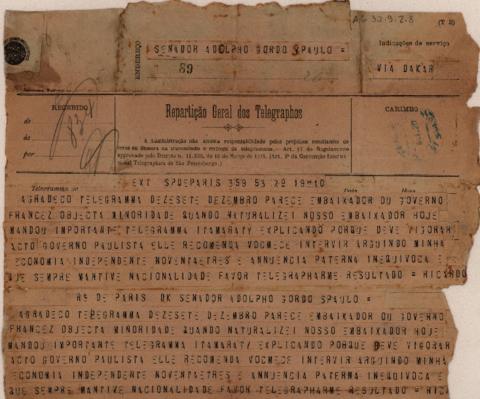 AG 30.9.2.8
(T 2)
ENDEREÇO
SENADOR ADOLPHO GORDO SPAULO =
89
Indicações de serviço
VIA DAKAR
RECEBIDO
de
da
por
Repartição Geral dos Telegraphos
CARIMBO
A administração não aceita responsabilidade pelos prejuizos resultantes de
Telegramma
EXT SPDEPARIS 359 53 29 19H10
AGRADECO TELEGRAMMA DEZESETE DEZEMBRO PARECE EMBAIXADOR DU GOVERNO
FRANCEZ OBJECTA MINORIDADE QUANDO NATURALIZEI NOSSO EMBAIXADOR HOJE
MANDOU IMPORTANTE TELEGRAMMA ITAMARATY EXPLICANDO PORQUE DEVE VIGORAR
ACTO GOVERNO PAULISTA ELLE RECOMENDA VOCMECE INTERVIR ARGUINDO MINHA
ECONOMIA INDEPENDENTE NOVENTAETRES E ANNUENCIA PATERNA INEQUIVOCA E
QUE SEMPRE MANTIVE NACIONALIDADE FAVOR TELEGRAPHARME RESULTADO = RICARDO
RS DE PARIS OK SENADOR ADOLPHO GORDO SPAULO =
AGRADECO TELEGRAMMA DEZESETE DEZEMBRO PARECE EMBAIXADOR DU GOVERNO
FRANCEZ OBJECTA MINORIDADE QUANDO NATURALIZEI NOSSO EMBAIXADOR HOJE
MANDOU IMPORTANTE TELEGRAMMA ITAMARATY EXPLICANDO PORQUE DEVE VIGORAR
ACTO GOVERNO PAULISTA ELLE RECOMENDA VOCMECE INTERVIR ARGUINDO MINHA
ECONOMIA INDEPENDENTE NOVENTAETRES E ANNUENCIA PATERNA INEQUIVOCA E
QUE SEMPRE MANTIVE NACIONALIDADE FAVOR TELEGRAPHARME RESULTADO = RIC